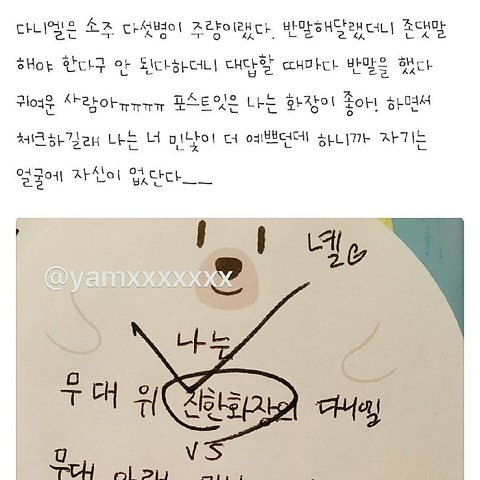 다니엘은 소주 다섯병이 주량이랬다. 반말해달랬더니 존댓말
해야 한다구 안 된다하더니 대답할 때마다 반말을 했다
귀여운 사람아ㅠㅠㅠㅠ 포스트잇은 나는 화장이 좋아! 하면서
체크하길래 나는 너 민낯이 더 예쁘던데 하니까 자기는
얼굴에 자신이 없단다__
녤
@yamxxxxxxx
나는
무대 위 진한화장의 다니엘
vs
무대 아래